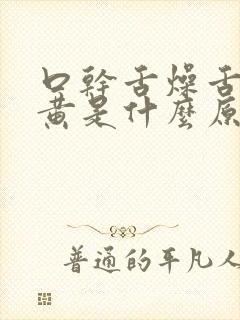 口幹舌燥舌
黃是什麼原
普通的平凡人